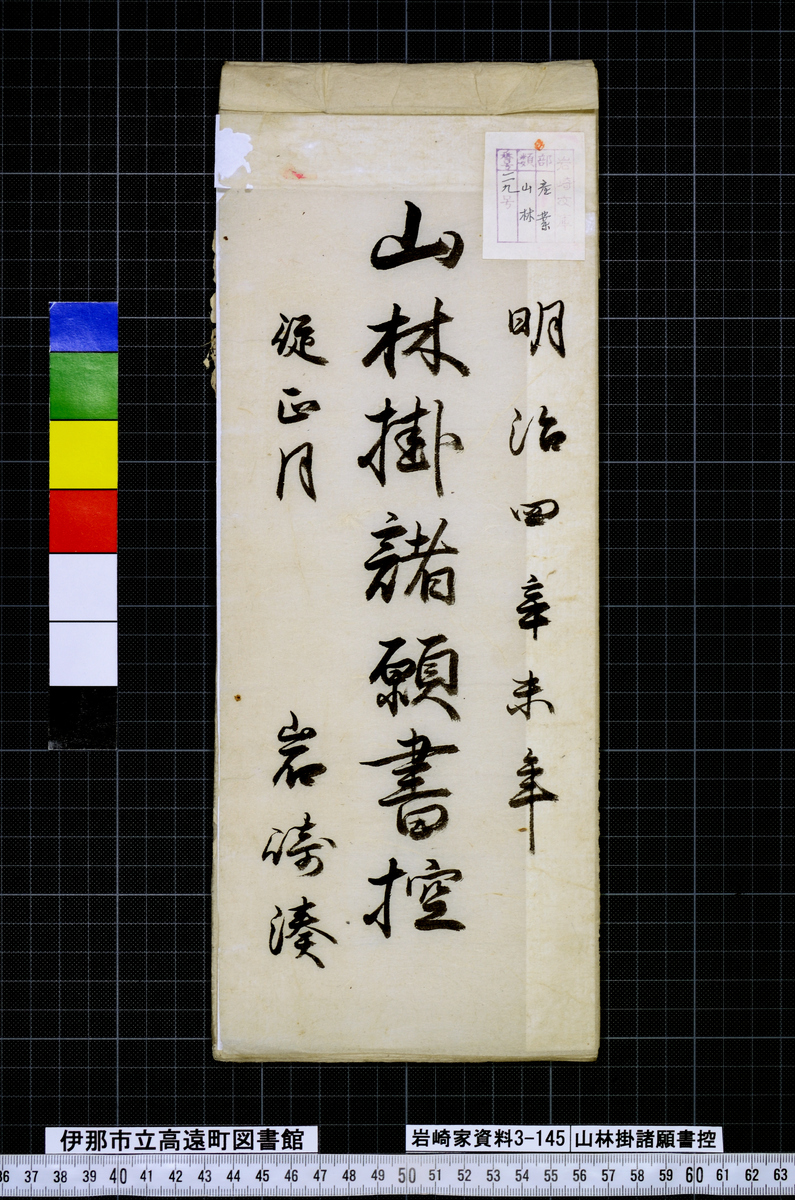 明治四辛未年
山林掛諸願書控
從正月
岩崎湊
部 産業
類 山林
番号 二九号
伊那市立高遠町図書館
岩崎家資料3-145
山林掛諸願書控
36 37 38 39 40 41 42 43 44 45 46 47 48 49 50 51 52 53 54 55 56 57 58 59 60 61 62 63